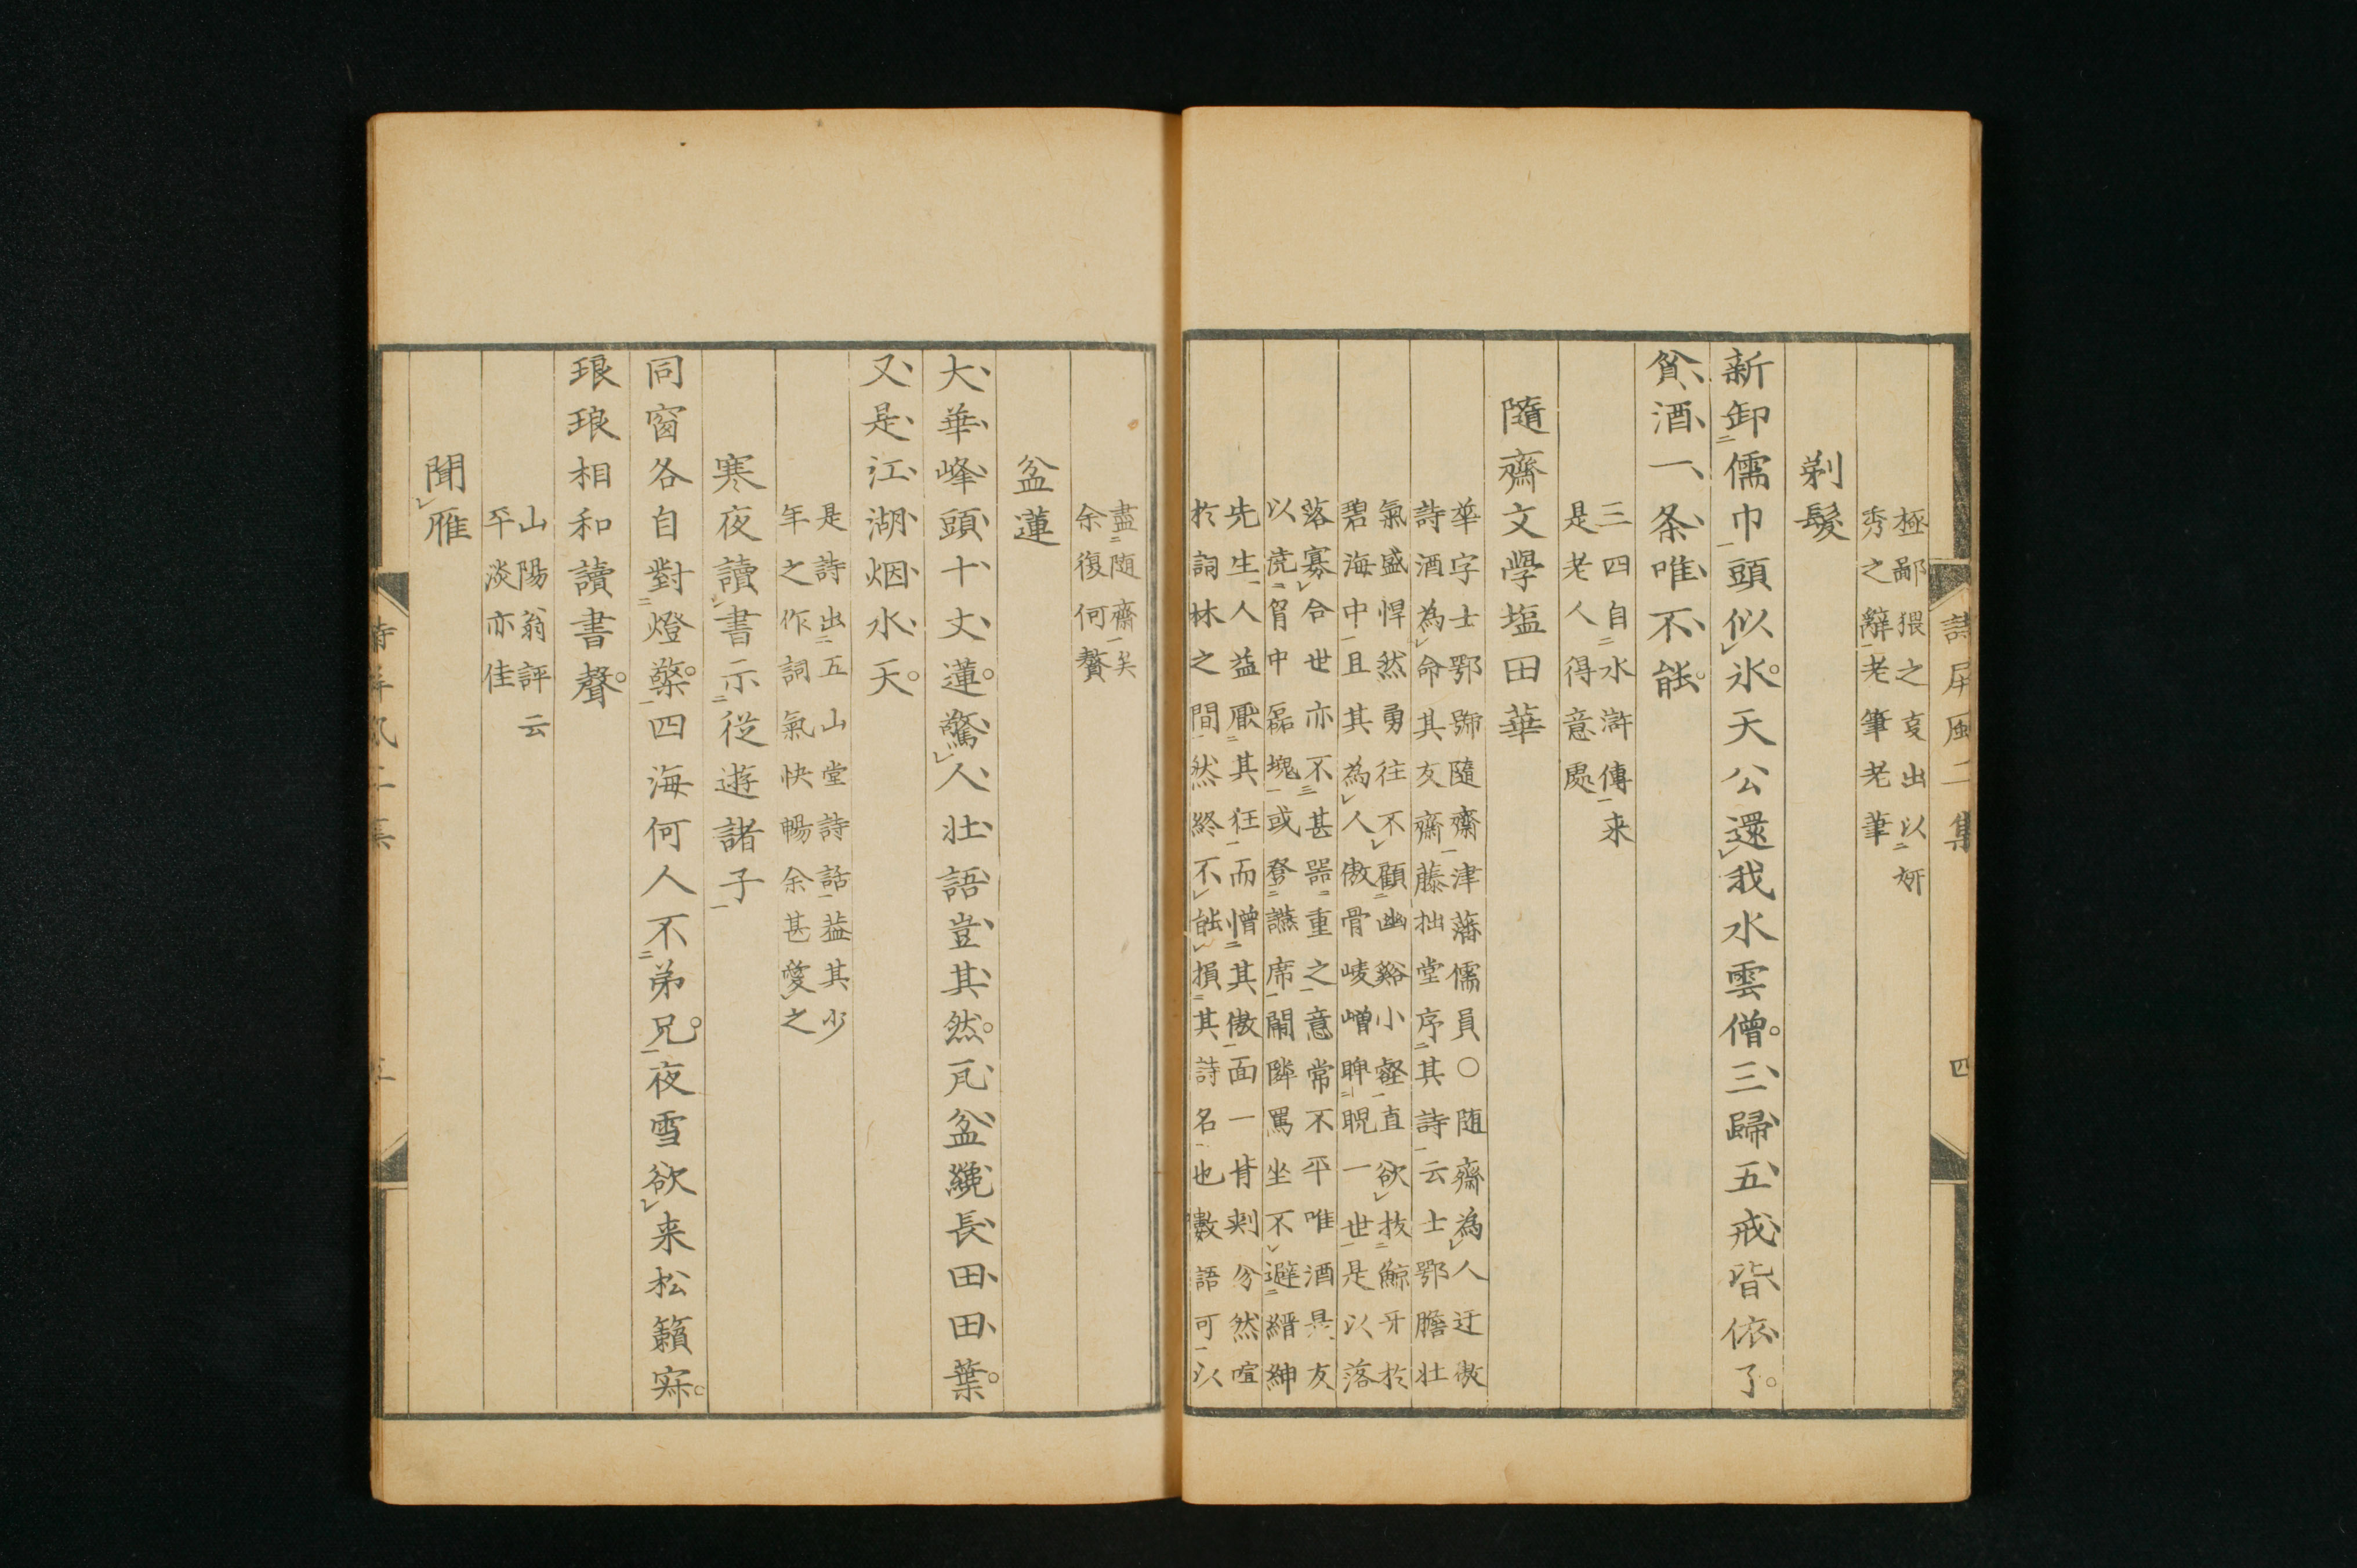 詩屏風二集 四
極鄙猥之叓出以妍
秀之辭老筆老筆
剃髮
新卸儒巾頭似氷天公還我水雲僧三歸五戒皆依了
貧酒一条唯不能
三四自水滸傳来
是老人得意處
隨齋文學塩田華
華字士鄂號隨齋津藩儒員○随齋為人迂傲
詩酒為命其友齋藤拙堂序其詩云士鄂膽壯
氣盛悍然勇往不顧幽谿小壑直欲抜鯨牙於
碧海中且其為人傲骨崚嶒睥睨一世是以落
落寡合世亦不甚器重之意常不平唯酒是友
以澆胷中磊塊或登讌席鬧隣罵坐不避縉紳
先生人益厭其狂而憎其傲面一背刺分然喧
於詞林之間然終不能損其詩名也數語可以
盡随齋矣
余復何贅
盆蓮
大華峰頭十丈蓮驚人壯語豈其然瓦盆纔長田田葉
又是江湖烟水天
是詩出五山堂詩話葢其少
年之作詞氣快暢余甚愛之
寒夜讀書示從遊諸子
同窗各自對燈檠四海何人不弟兄夜雪欲来松籟寂
琅琅相和讀書聲
山陽翁評云
平淡亦佳
聞雁